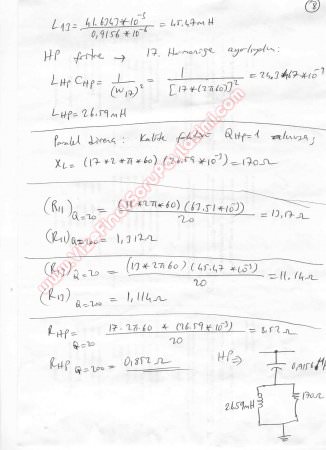 8
L13 = 41.6343*10^-3 / 0,9156*10^-6 = 45.47mH
HP filtre → 17. Harmoniğe ayarlıyalım:
LHP CHP = 1/(W17)^2 = 1/[17*(2π60)]^2 = *10^-9
LHP = 26.59mH
Paralel direnç: Kalite faktörü QHP=1 alınırsa;
XL = (17*2*π*60)(26.59*10^-3) = 170Ω
(R11)Q=20 = (11*2π*60)(63.51*10^-3) / 20 = 13,17Ω
(R11)Q=200 = 1,317Ω
(R13)Q=20 = (13*2π60)(45.47*10^-3) / 20 = 11.14Ω
(R13)Q=200 = 1,114Ω
RHP Q=20 = 17.2π.60*(26.59*10^-3) / 20 = 8.52Ω
RHP Q=200 = 0,852Ω
HP ⇒
0,9156μF
26.59mH
170Ω
www.VizeFinalSoruPaylasimi.com